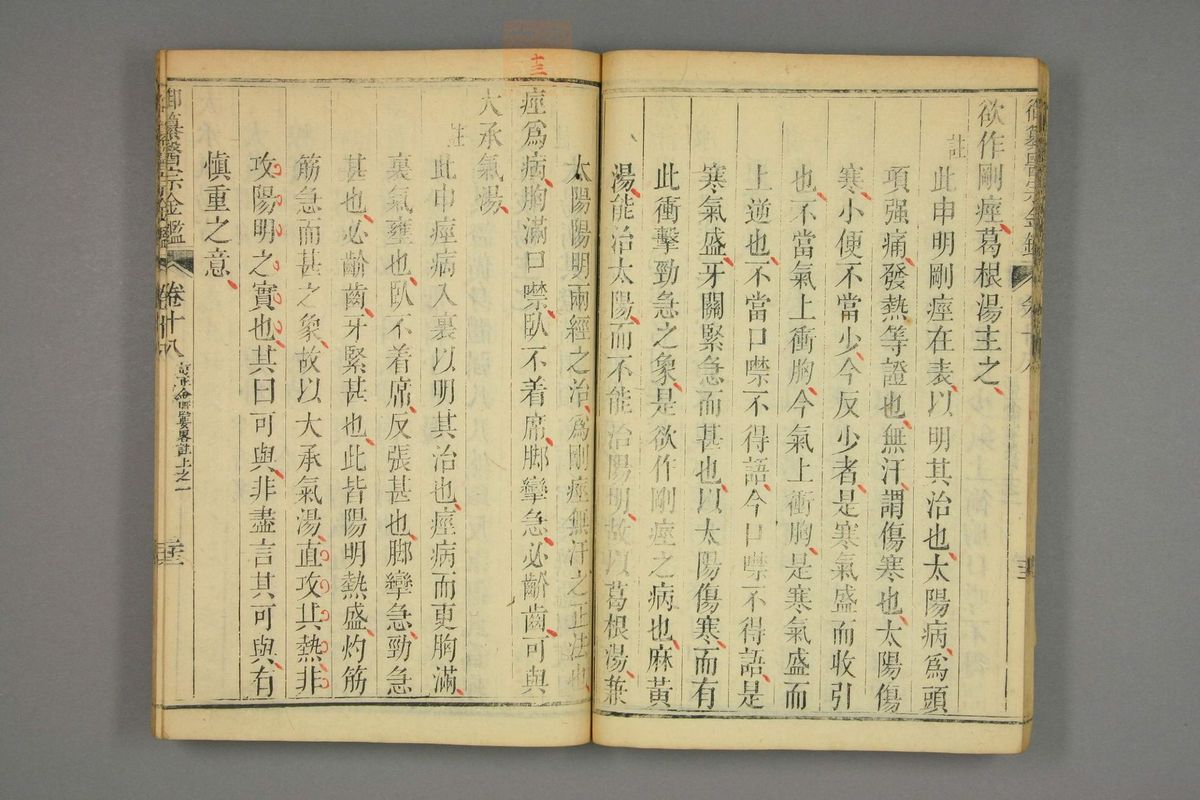 御纂醫宗金鑑
欲作剛痙葛根湯主之
註
此申明剛痙在表以明其治也太陽病爲頭
項强痛發熱等證也無汗謂傷寒也太陽傷
寒小便不當少今反少者是寒氣盛而收引
也不當氣上衝胸今氣上衝胸是寒氣盛而
上逆也不當口噤不得語今口噤不得語是
寒氣盛牙關緊急而甚也以太陽傷寒而有
此衝擊勁急之象是欲作剛痙之病也麻黃
湯能治太陽而不能治陽明故以葛根湯兼
太陽陽明兩經之治爲剛痙無汗之正法也
痙爲病胸滿口噤臥不着席脚攣急必齘齒可與
大承氣湯
註
此申痙病入裏以明其治也痙病而更胸滿
裏氣壅也臥不着席反張甚也脚攣急勁急
甚也必齘齒牙緊甚也此皆陽明熱盛灼筋
筋急而甚之象故以大承氣湯直攻其熱非
攻陽明之實也其曰可與非盡言其可與有
慎重之意
御纂醫宗金鑑
卷十八
訂正金匱要略註上之一
十三